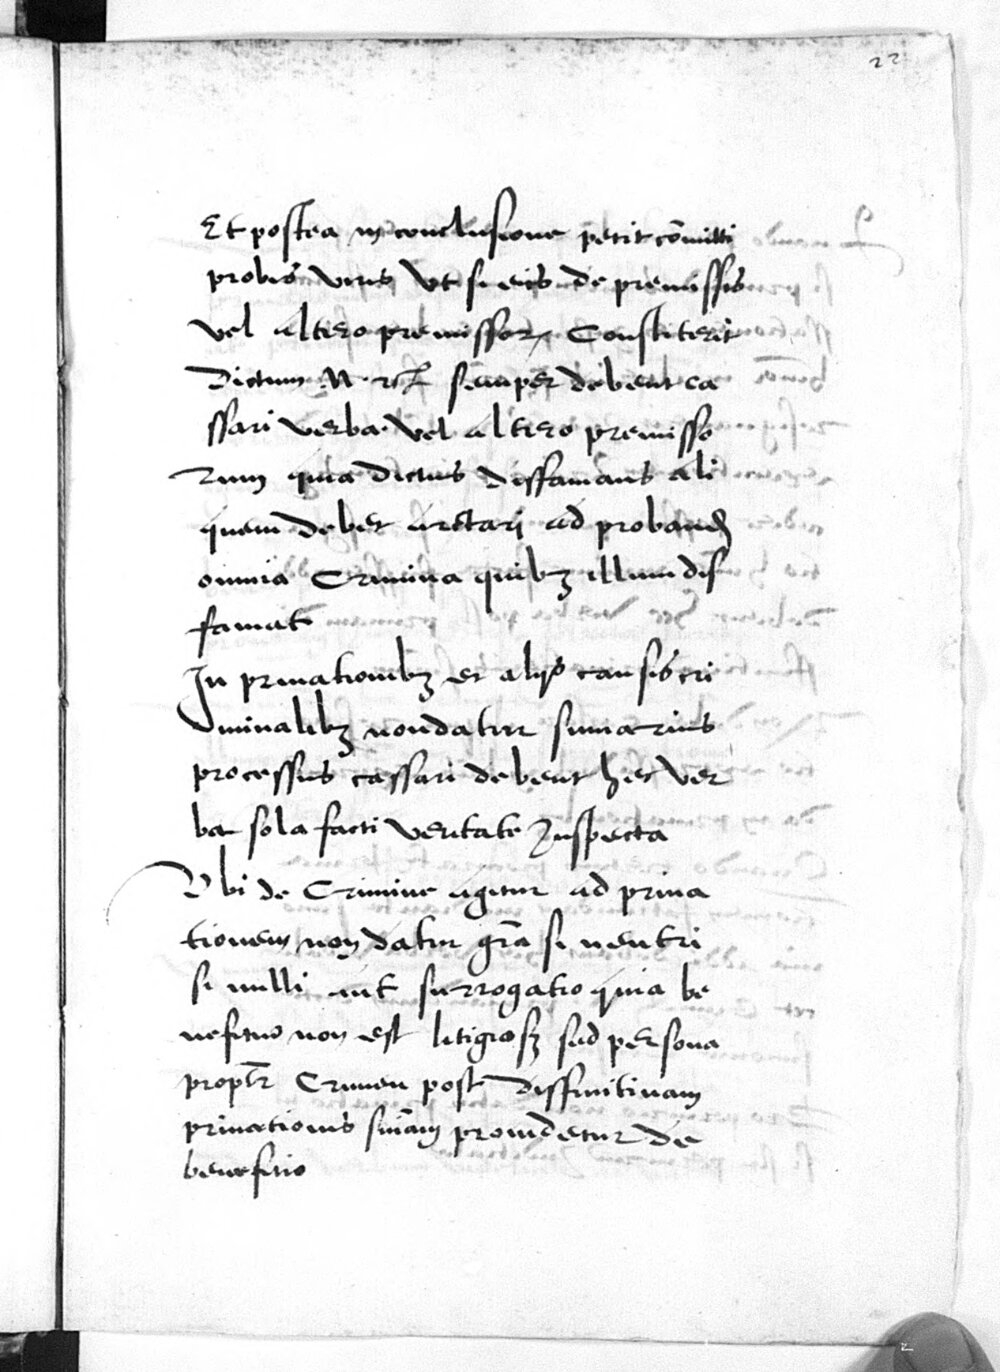 22
Et postea in conclusione petit cōmitti
probis viris vt si eis de premissis
vel altero premissoꝝ Constiterit
Dictum N rc̄ semper debent ca
ssari verba vel altero premisso
rum quia dictus diffamans ali
quem debet arctari ad proband
omnia Crimina quibꝫ illum dif
famat
In priuationibꝫ et alijs causis cri
minalibꝫ non datur sumarius
processus cassari debent hec ver
ba sola facti veritate Inspecta
Vbi de Crimine agitur ad priua
tionem non datur grā si neutri
si nulli aut surrogatio quia be
nefitio non est litigiosꝫ sed persona
propt̄r Crimen post diffinitiuam
priuationis sniām prouidetur de
benefitio